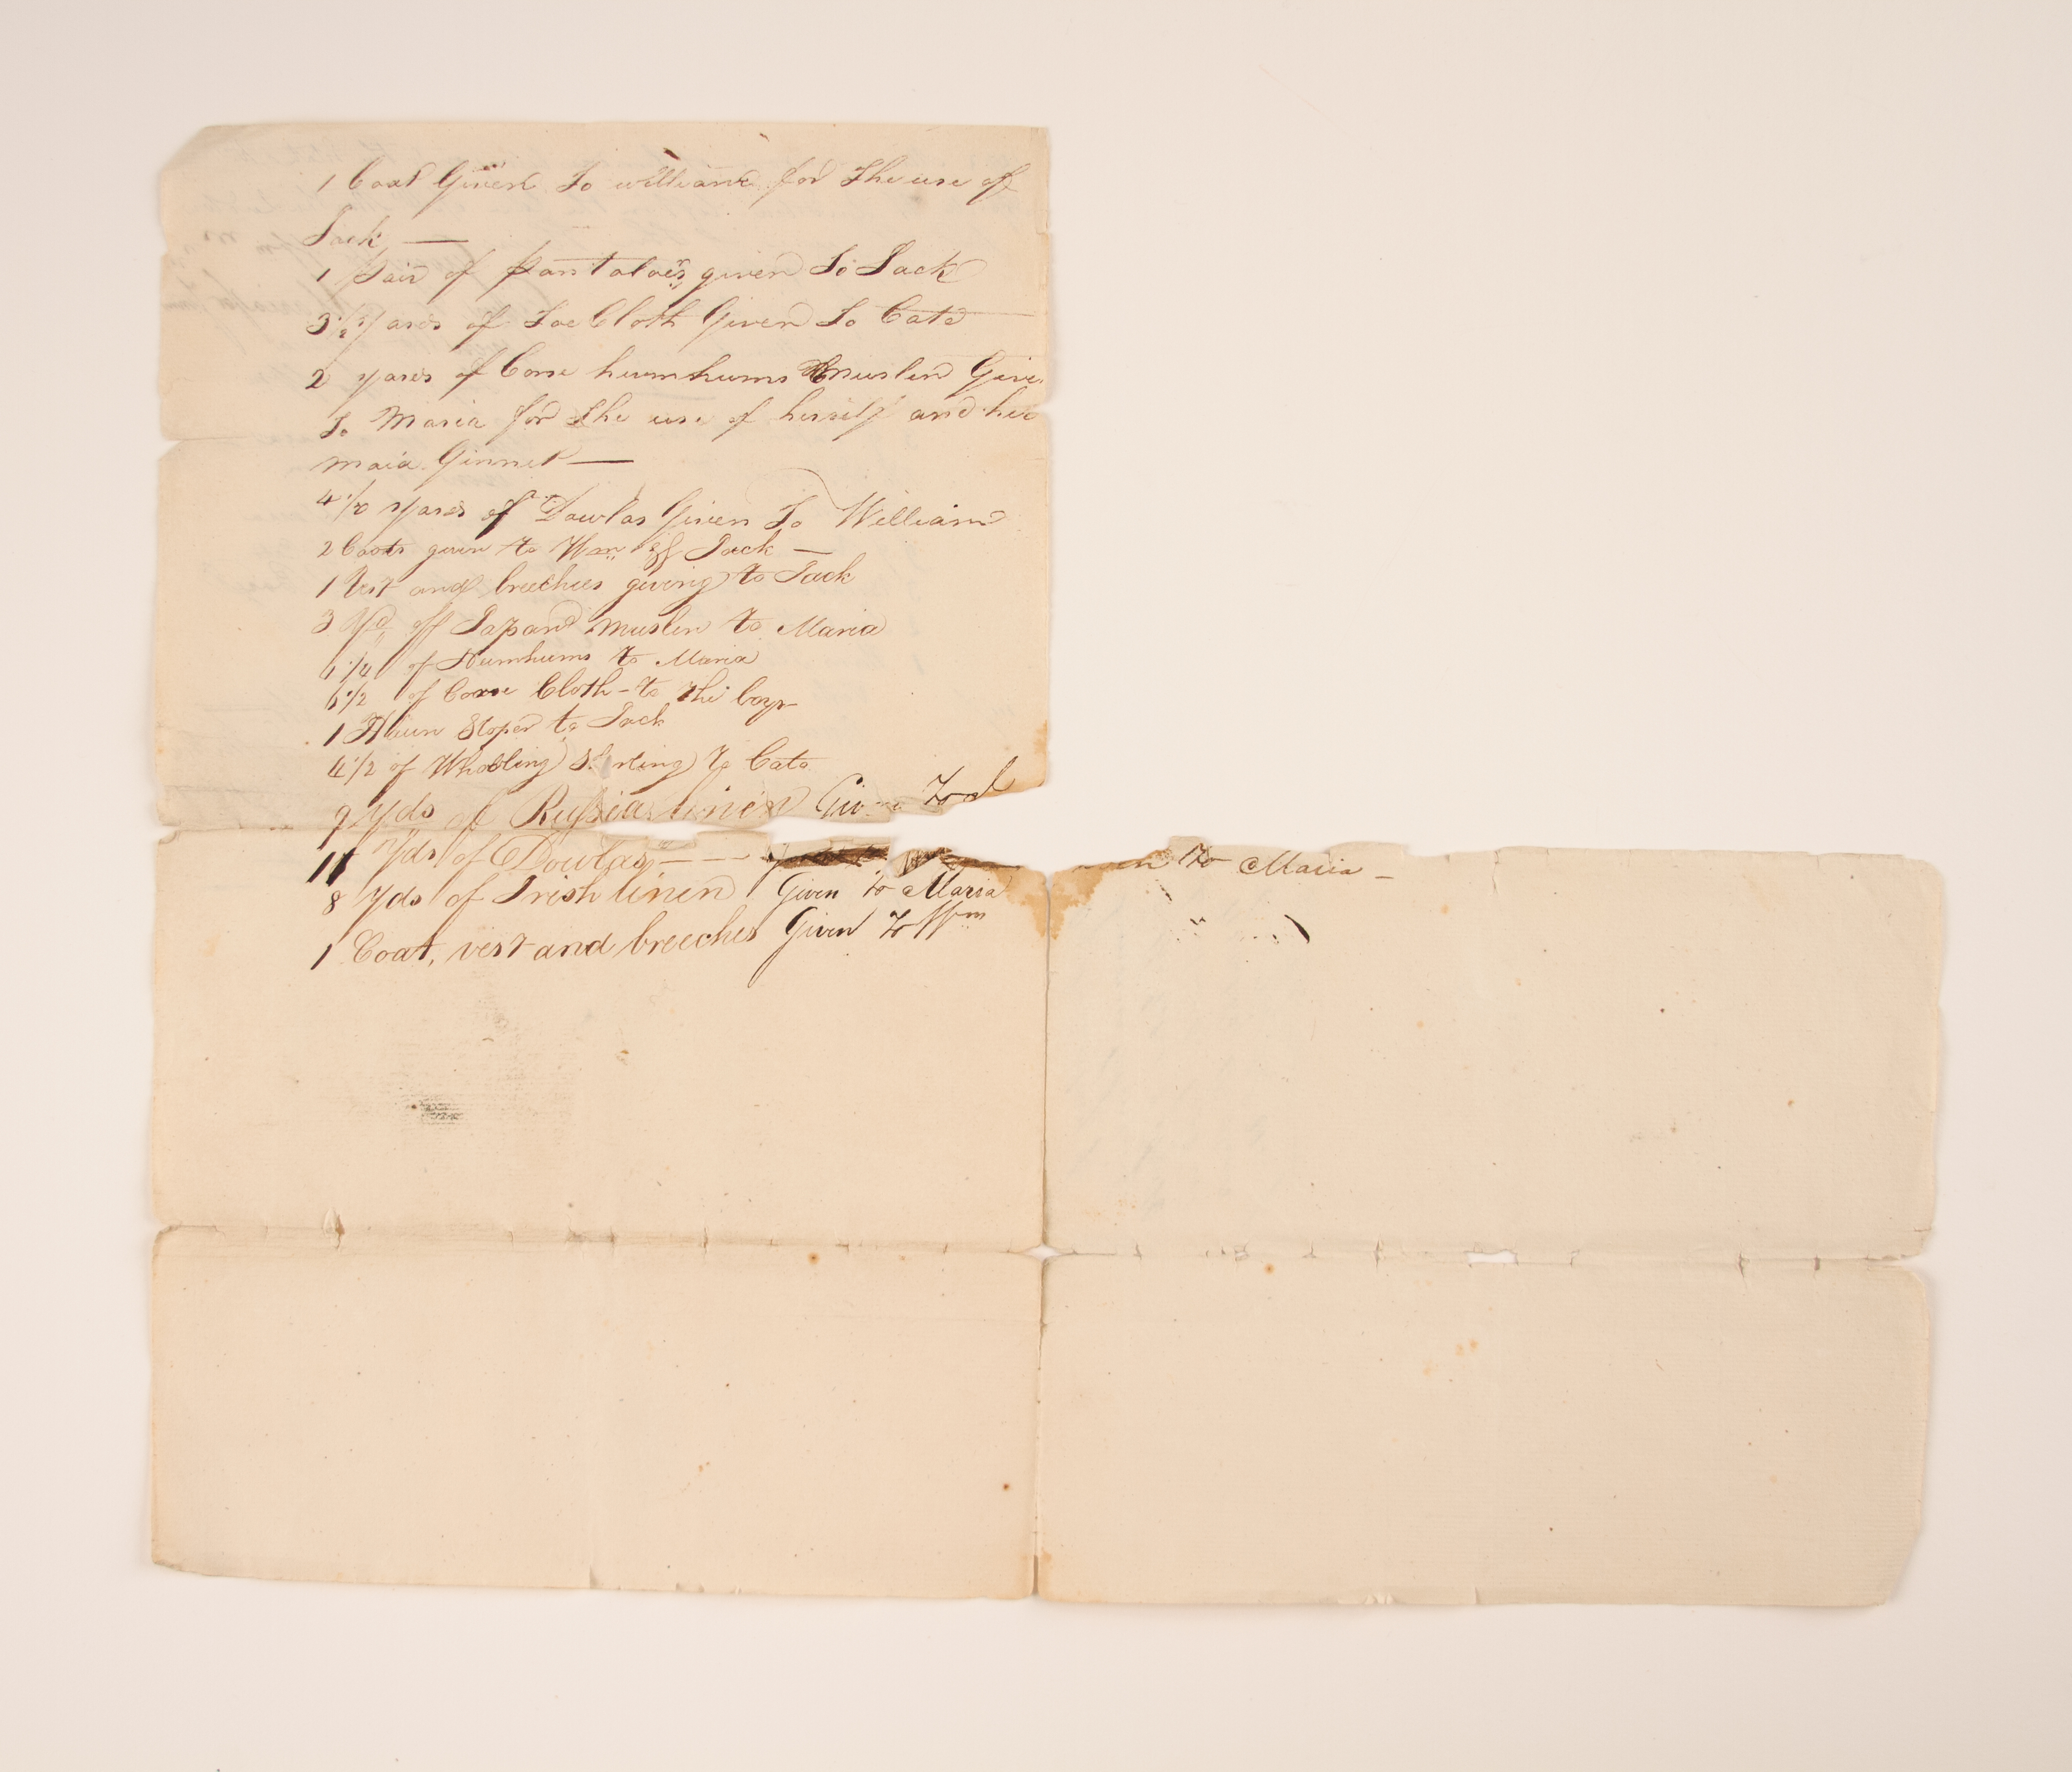 1 Coat Given To William for The use of
Jack —
1 pair of pantaloe's given To Jack
3 1/2 yards of Toe Cloth Given To Cato
2 yards of Corse humhums muslin Give
To Maria for The use of herself and her
maid Ginnet —
4 1/2 yards of Dowlas Given To William
2 Coats given to Wm & Jack —
1 Vest and breeches giving to Jack
3 Yd off Japand muslin to Maria
1 1/4 of Humhums to Maria
6 1/2 of Corse Cloth - to The boys
1 to Jack
4 1/2 of to Cato
9 Yds of Russia linen Given To
11 Yds of Dowlas — — to Maria —
8 Yds of Irish linen Given to Maria
1 Coat, vest and breeches Given To Wm